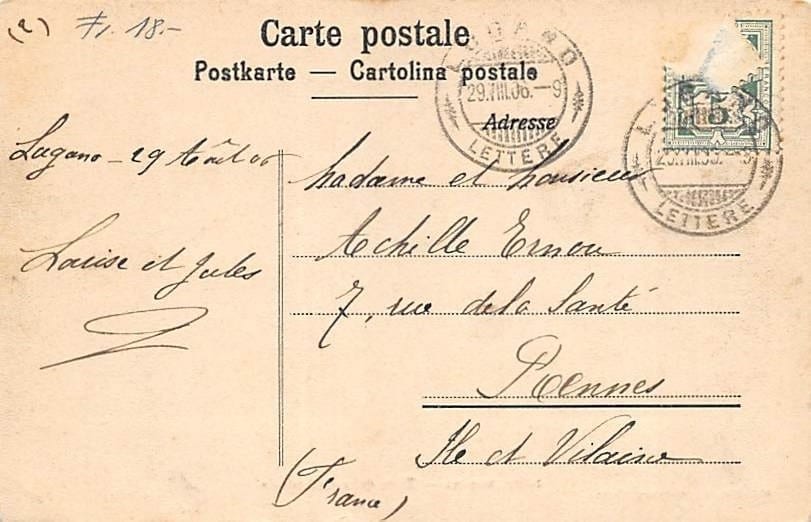 (2) Fr. 18.-
Carte postale
Postkarte — Cartolina postale
Adresse
29.VIII.06.-9
LETTERE
5
29.VIII.06.-9
LETTERE
Lugano - 29 Août 06
Louise et Jules
Madame et Monsieur
Achille Ernou
7, rue de la Santé
Rennes
Ile et Vilaine
(France)